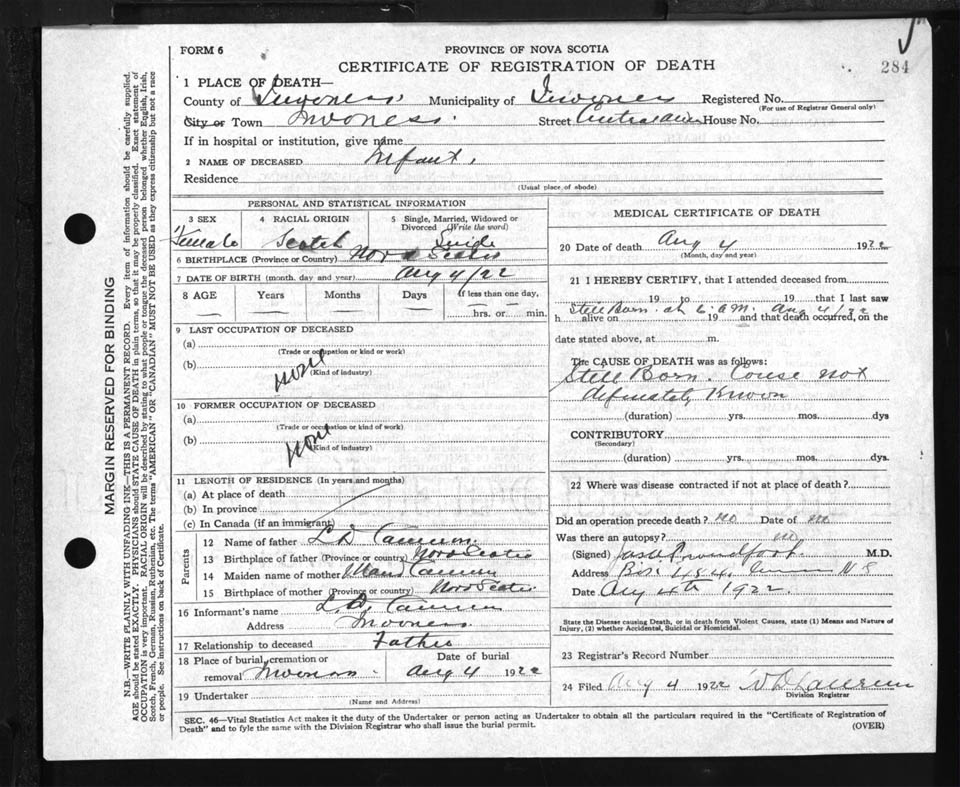 FORM 6
PROVINCE OF NOVA SCOTIA
CERTIFICATE OF REGISTRATION OF DEATH
284
1 PLACE OF DEATH—
County of Inverness Municipality of Inverness Registered No.
(For use of Registrar General only)
City or Town Inverness Street Central Ave House No.
If in hospital or institution, give name
2 NAME OF DECEASED Infant
Residence
(Usual place of abode)
PERSONAL AND STATISTICAL INFORMATION
3 SEX 4 RACIAL ORIGIN 5 Single, Married, Widowed or Divorced (Write the word)
Female Scotch Single
6 BIRTHPLACE (Province or Country) Nova Scotia
7 DATE OF BIRTH (month, day and year) Aug 4/22
8 AGE Years Months Days If less than one day,
hrs. or min.
9 LAST OCCUPATION OF DECEASED
(a)
(Trade or occupation or kind or work)
(b) None
(Kind of industry)
10 FORMER OCCUPATION OF DECEASED
(a)
(Trade or occupation or kind of work)
(b) None
(Kind of industry)
11 LENGTH OF RESIDENCE (In years and months)
(a) At place of death
(b) In province
(c) In Canada (if an immigrant)
Parents
12 Name of father L D Cameron
13 Birthplace of father (Province or country) Nova Scotia
14 Maiden name of mother Cameron
15 Birthplace of mother (Province or country) Nova Scotia
16 Informant's name L. D. Cameron
Address Inverness
17 Relationship to deceased Father
18 Place of burial, cremation or Date of burial
removal Inverness Aug 4 1922
19 Undertaker
(Name and Address)
MEDICAL CERTIFICATE OF DEATH
20 Date of death Aug 4 1922
(Month, day and year)
21 I HEREBY CERTIFY, that I attended deceased from
19 to 19 that I last saw
Still Born at 6 a.m. Aug 4/22
h alive on 19 and that death occurred, on the
date stated above, at m.
The CAUSE OF DEATH was as follows:
Still Born. Couse not
definately Known
(duration) yrs. mos. dys
CONTRIBUTORY
(Secondary)
(duration) yrs. mos. dys.
22 Where was disease contracted if not at place of death?
Did an operation precede death? No Date of no
Was there an autopsy? no
(Signed) Proudfoot M.D.
Address Box 484, N S
Date Aug 4th 1922
State the Disease causing Death, or in death from Violent Causes, state (1) Means and Nature of
Injury, (2) whether Accidental, Suicidal or Homicidal.
23 Registrar's Record Number
24 Filed Aug 4 1922
Division Registrar
SEC. 46—Vital Statistics Act makes it the duty of the Undertaker or person acting as Undertaker to obtain all the particulars required in the "Certificate of Registration of
Death" and to fyle the same with the Division Registrar who shall issue the burial permit.
(OVER)
MARGIN RESERVED FOR BINDING
N.B.—WRITE PLAINLY WITH UNFADING INK—THIS IS A PERMANENT RECORD. Every item of information should be carefully supplied.
AGE should be stated EXACTLY. PHYSICIANS should STATE CAUSE OF DEATH in plain terms, so that it may be properly classified. Exact statement of
OCCUPATION is very important. RACIAL ORIGIN will be described by stating to what people or tongue the deceased person belonged whether English, Irish,
Scotch, French, German, Russian, Ruthenian, etc. The terms "AMERICAN" OR "CANADIAN" MUST NOT BE USED as they express citizenship but not a race
or people. See instructions on back of Certificate.